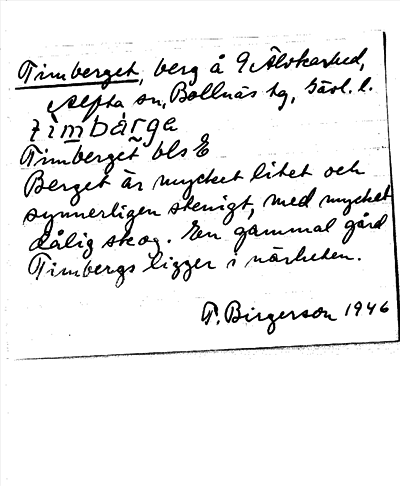 Timberget, berg å Älvkarhed,
Alfta sn, Bollnäs tg, Gävl. l.
timbärga
Timberget bls E
Berget är mycket litet och
synnerligen stenigt, med mycket
dålig skog. En gammal gård
Timbergs ligger i närheten.
T. Birgerson 1946